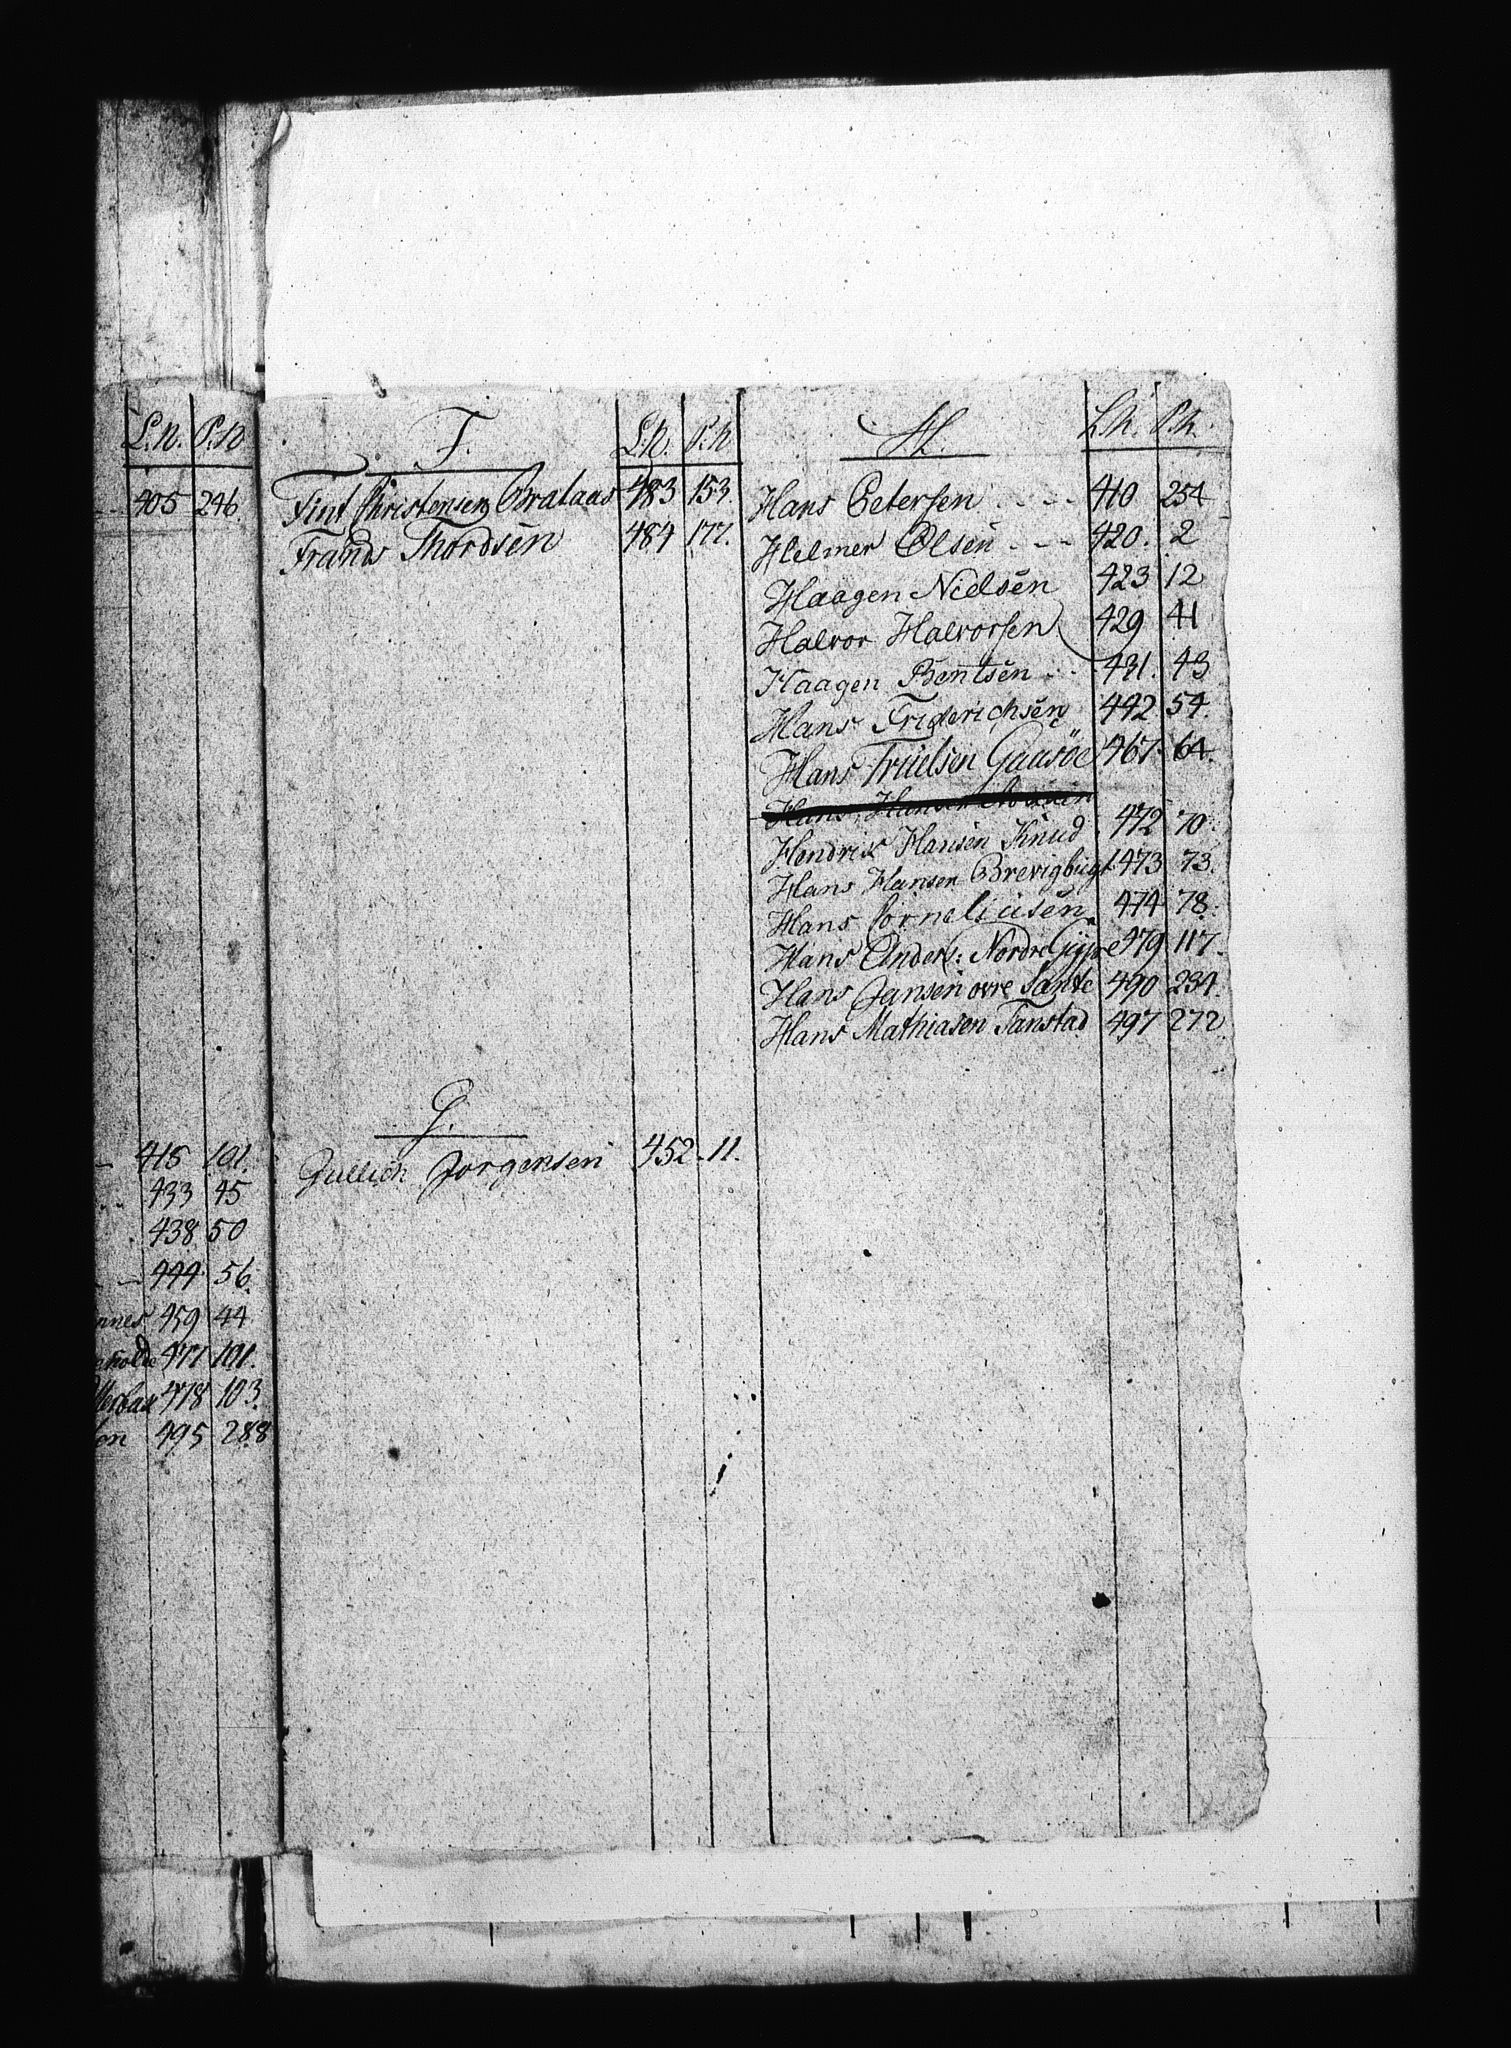 L.N. P.N
405 246.
415 101.
433 45
438 50
444 56.
nnes 459 44
eholde 477 101.
478 103.
sen 495 288
F. L.N. P.N
Fint Christensen Brataas 483 153
Frands Thordsen 484 177.
G.
Gullich Jorgensen 452 11.
H. L.N. P.N.
Hans Petersen - - - 410 254
Helmer Olsen - - - 420. 2
Haagen Nielsen 423 12
Halvor Halvorsen 429 41
Haagen Bentsen . . 431. 43
Hans Friderichsen 442 54.
Hans Truelsen Gaasöe 467. 64.
Hans Hansen
Hendrik Hansen Knud. 472 70.
Hans Hansen Brevigbugt 473 73.
Hans Corneliusen 474 78.
Hans Anders: Nordre Gijpe 479 117.
Hans Jansen ovre Sante 490 234.
Hans Mathiasen Tanstad 497 272